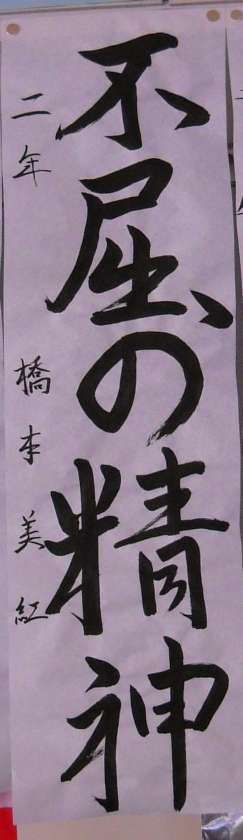 不屈の精神
二年 橋本美紅